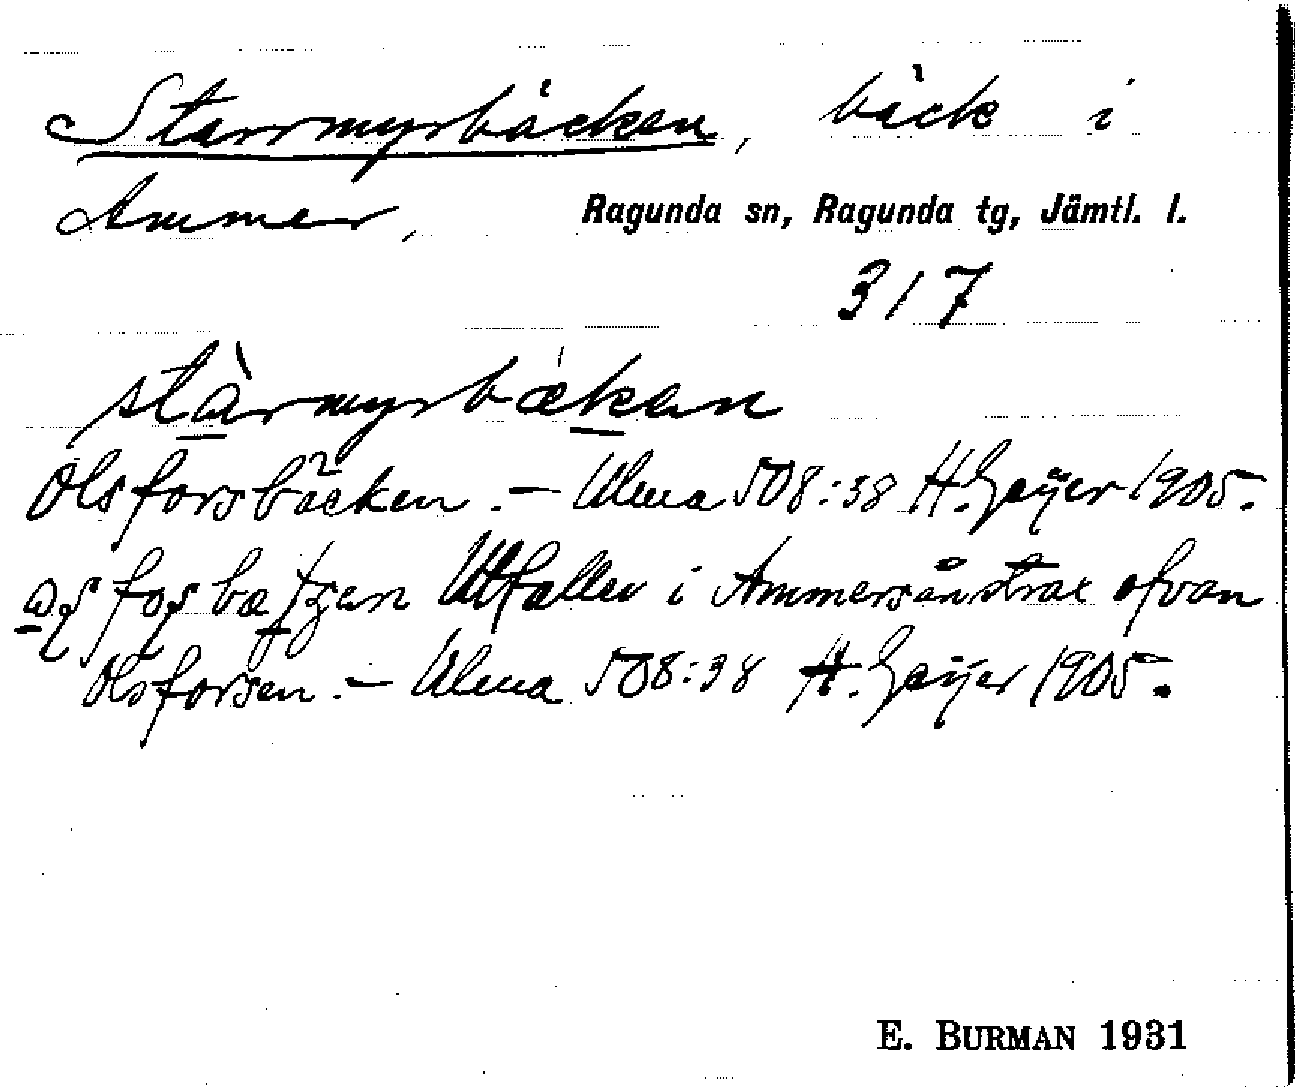 Starrmyrbäcken, bäck i
Ammer, Ragunda sn, Ragunda tg, Jämtl. l.
317
stàrmyrbǽkan
Olsforsbäcken. – Ulma 508:38 H. Geijer 1905.
Utfaller i Ammersån strax ofvan
Olsforsen. – Ulma 508:38 H. Geijer 1905.
E. BURMAN 1931